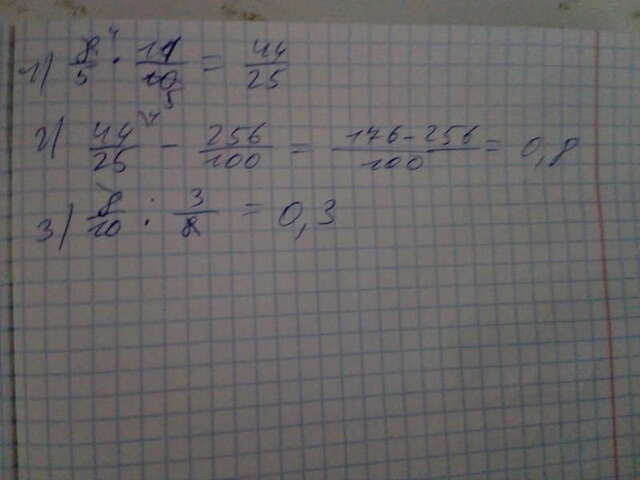 1) 8/5 4 · 11/10 5 = 44/25
2) 44/25 4 - 256/100 = 176-256/100 = 0,8
3) 8/10 : 3/8 = 0,3